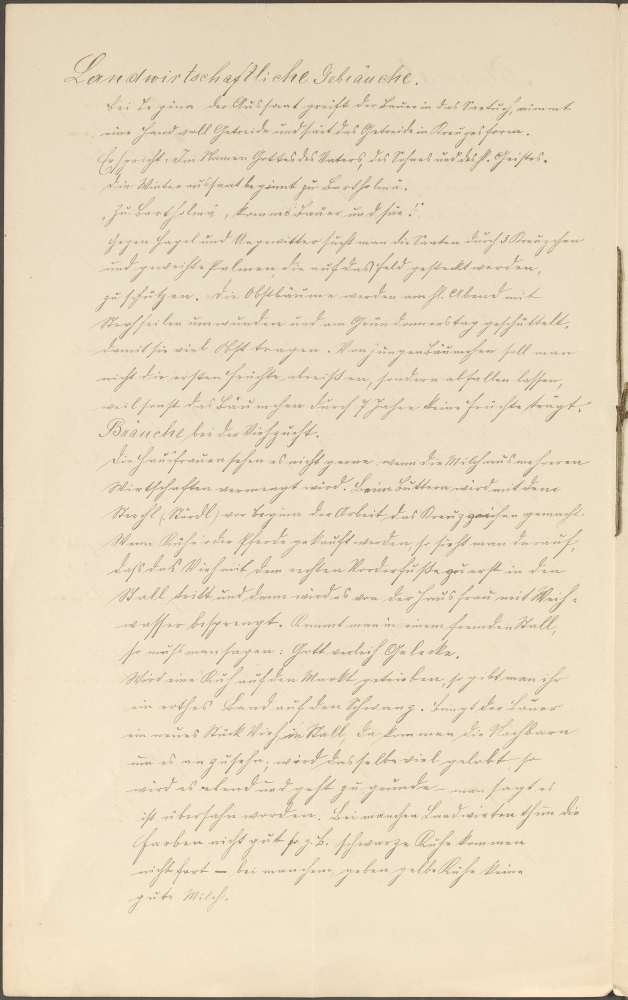 Landwirtschaftliche Gebräuche.
Bei Beginn der Aussaat greift der Bauer in das Saattuch, nimmt
eine Hand voll Getreide und säet das Getreide in Kreuzesform.
Er spricht: Im Namen Gottes des Vaters, des Sohnes und des hl. Geistes.
Die Winteraussaat beginnt zu Bartholmä.
"Zu Bartholmä, komm Bauer und säe!"
Gegen Hagel und Ungewitter sucht man die Saaten durch 3 Kreuzchen
und geweihte Palmen, die auf das Feld gesteckt werden,
zu schützen. Die Obstbäume werden am hl. Abend mit
Strohseilen umwunden und am Gründonnerstag geschüttelt,
damit sie viel Obst tragen. Von jungen Bäumchen soll man
nicht die ersten Früchte abreißen, sondern abfallen lassen,
weil sonst das Bäumchen durch 7 Jahre keine Früchte trägt.
Bräuche bei der Viehzucht.
Die Hausfrauen sehen es nicht gerne, wenn die Milch aus mehreren
Wirtschaften vermengt wird. Beim Buttern wird mit dem
vor Beginn der Arbeit das Kreuzzeichen gemacht.
Wenn Kühe oder Pferde gekauft werden, so sieht man darauf,
daß das Vieh mit dem rechten Vorderfuße zuerst in den
Stall tritt und dann wird es von der Hausfrau mit Weih-
wasser besprengt. Kommt man in einem fremden Stall,
so muß man sagen: Gott verleih Gelecke.
Wird eine Kuh auf den Markt getrieben, so gibt man ihr
ein rothes Band auf den Schwanz. Bringt der Bauer
ein neues Stück Vieh in Stall, da kommen die Nachbarn
um es anzusehn, wird dasselbe viel gelobt, so
wird es elend und geht zu grunde – man sagt es
ist übersehn worden. Bei manchen Landwirten thun die
Farben nicht gut so z. B. schwarze Kühe kommen
nicht fort – bei manchem geben gelbe Kühe keine
gute Milch.